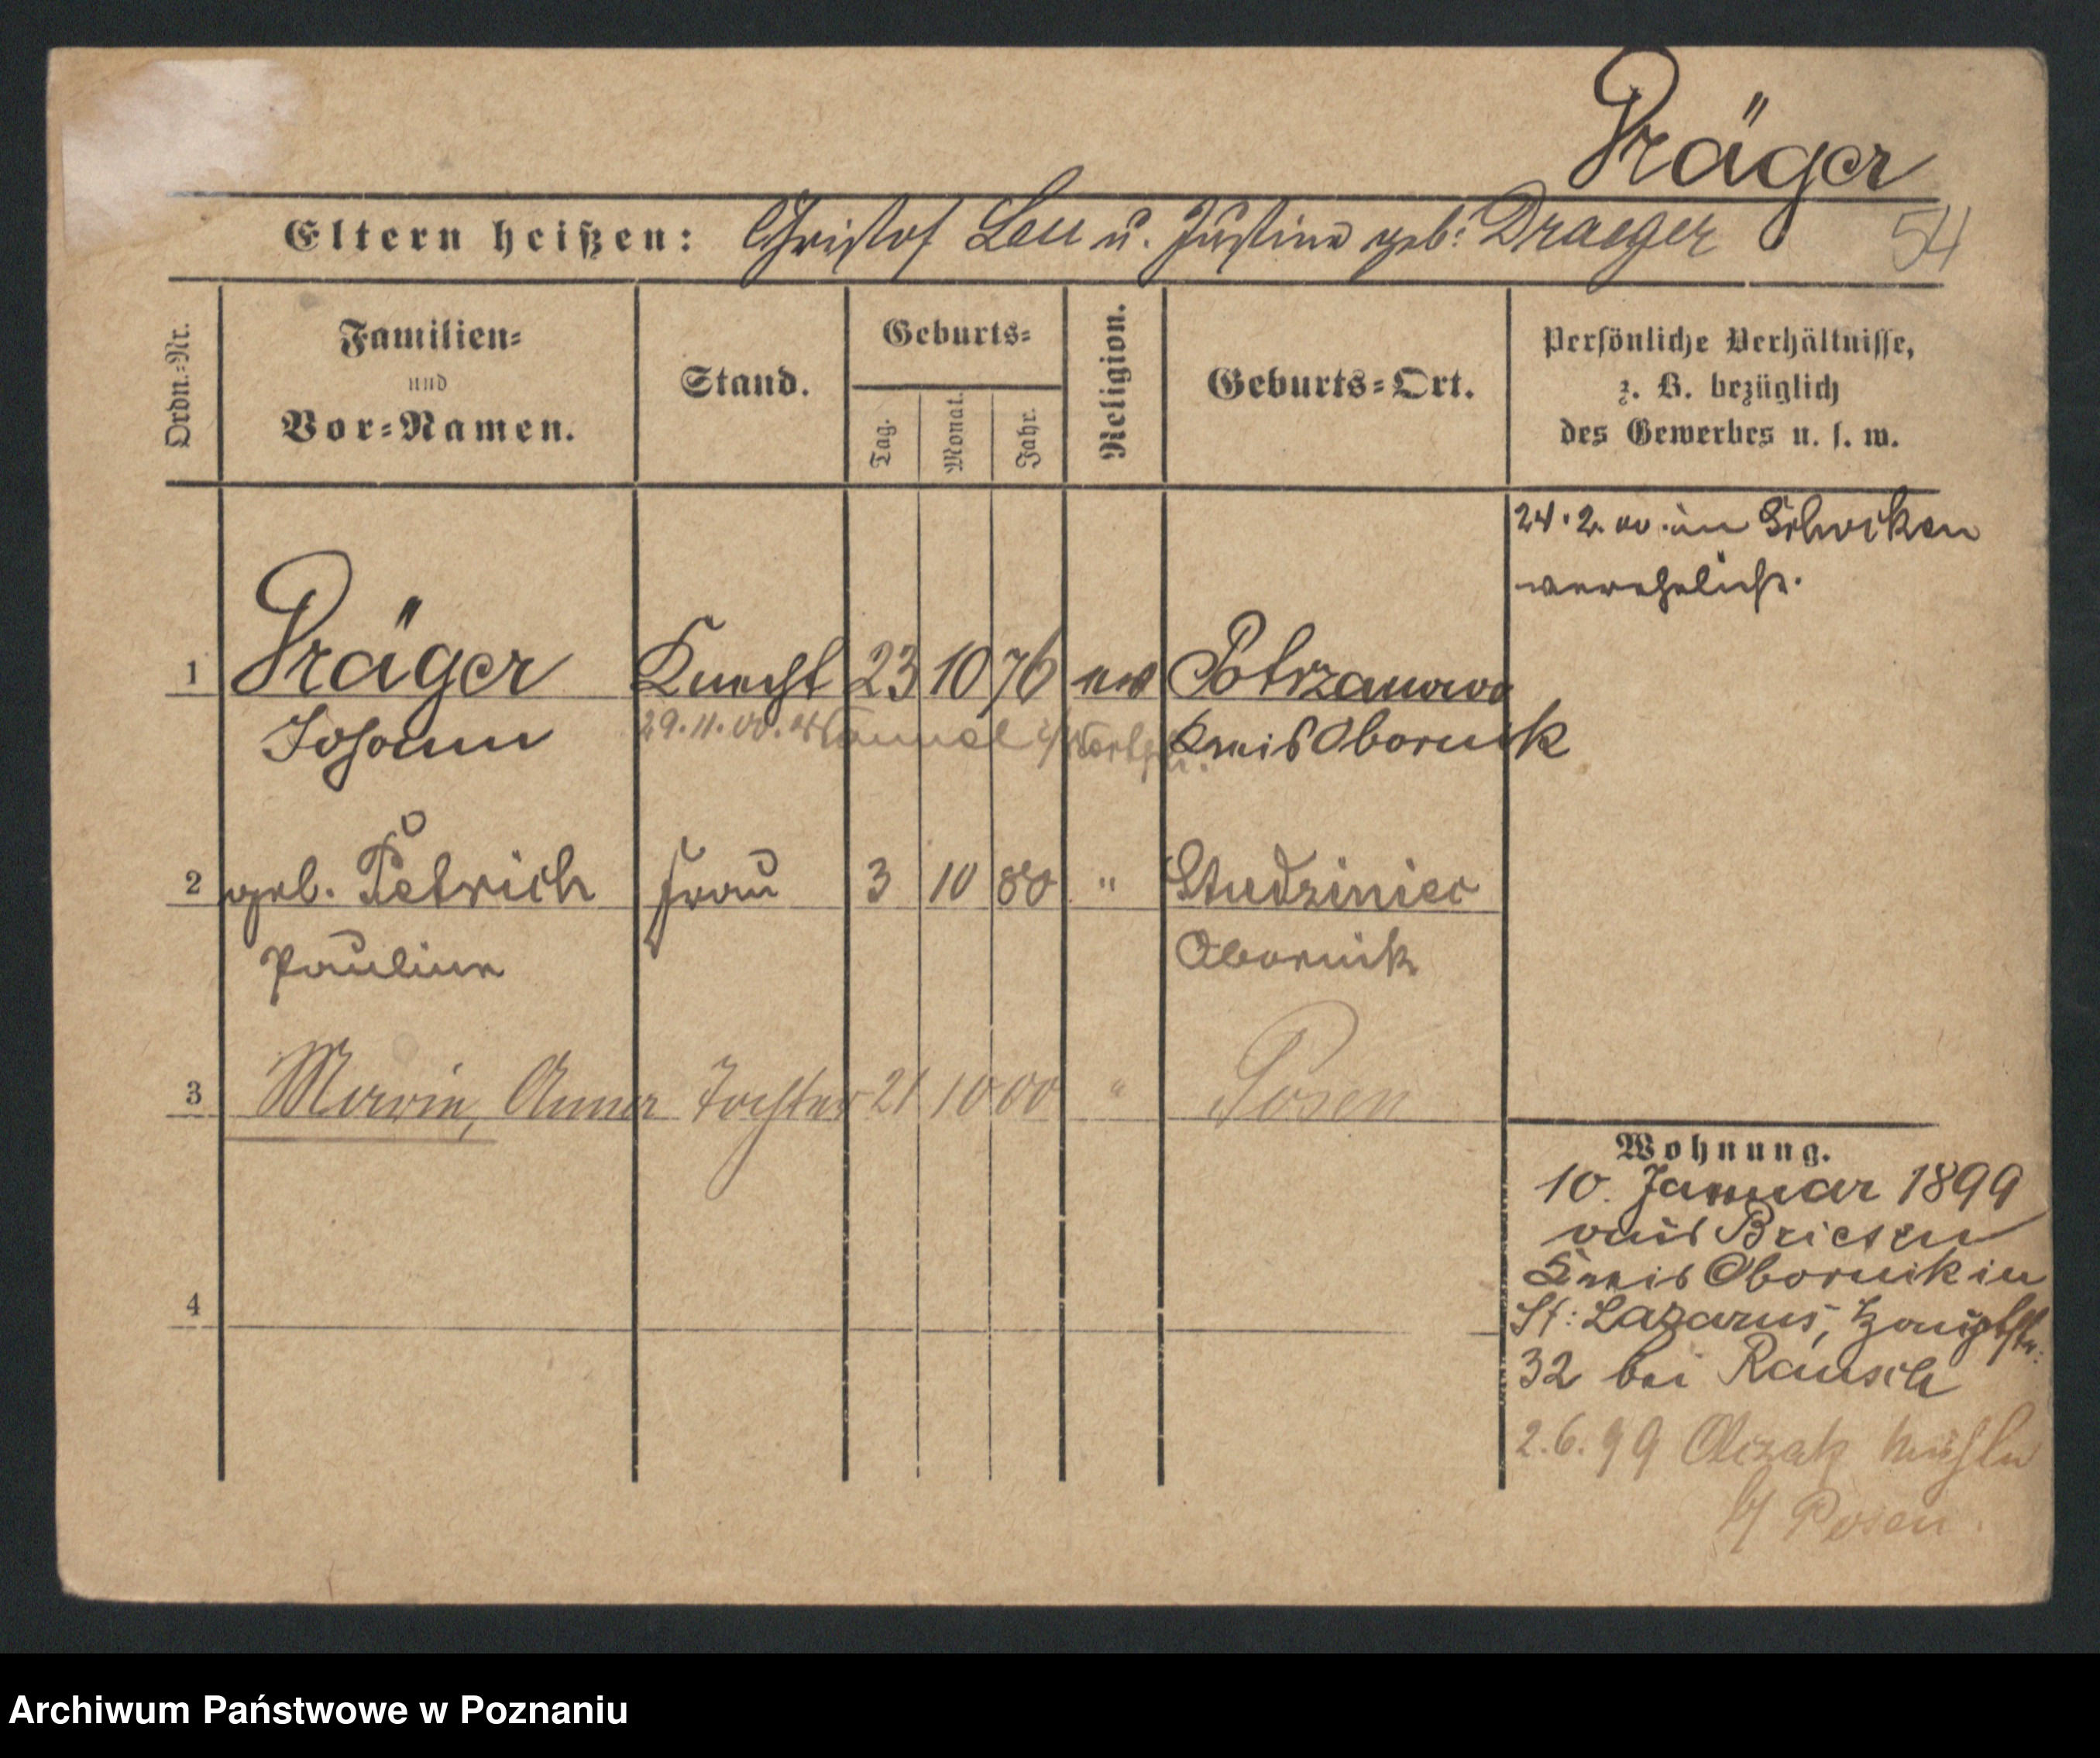 Präger
Eltern heißen: Christof Leu u. Justine geb: Draeger
54
Ordn.-Nr.
Familien-
und
Vor-Namen.
Stand.
Geburts-
Tag.
Monat.
Jahr.
Religion.
Geburts-Ort.
Persönliche Verhältnisse,
z. B. bezüglich
des Gewerbes u. s. w.
24. 2. 00. in
verehelicht.
1 Präger Knecht 23 10 76 ev Potrzanowo
Johann 29. 11. 00. Kreis Obornik
2 geb. Petrich Frau 3 10 80 " Studziniec
Pauline Obornik
3 Marie, Anna Tochter 21 10 00 " Posen
4
Wohnung.
10. Januar 1899
aus Briesen
Kreis Obornik in
St: Lazarus, Hauptstr:
32 bei Rausch
2. 6. 99 Olczak Mühle
b/ Posen.
Archiwum Państwowe w Poznaniu